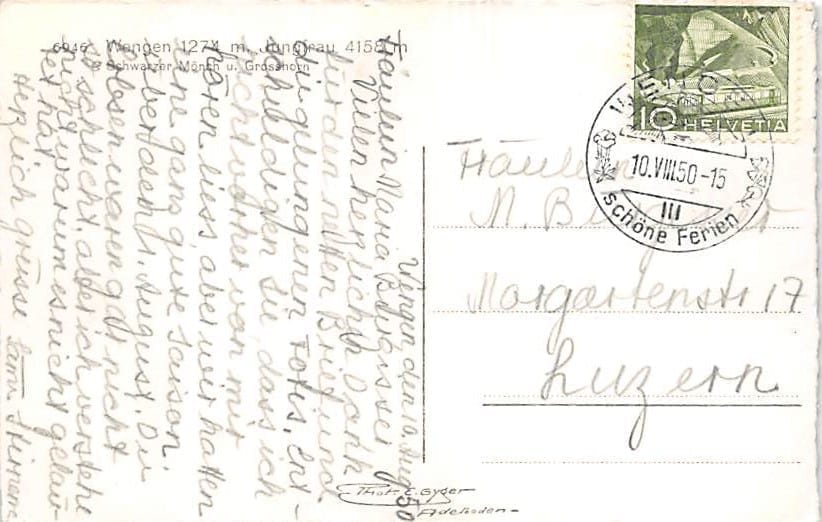 6946 Wengen 1274 m. Jungfrau 4158 m
Schwarzer Mönch u. Grosshorn
10 HELVETIA
WENGEN
10.VIII.50-15
III
schöne Ferien
Fräulein
M.
Morgartenstr 17
Luzern
Phot. E. Gyger
Adelboden
Wengen, den 10. Aug. 50
Fräulein Maria
Vielen herzlichen Dank
für den netten Brief und
die gelungenen Fotos. Ent-
schuldigen Sie, dass ich
nicht eher von mir
hören liess, aber wir hatten
eine ganz gute Saison,
über den 1. August. Die
waren gar nicht
so schlecht, aber ich verstehe
nicht warum es nicht
hat.
Herzlich grüsse